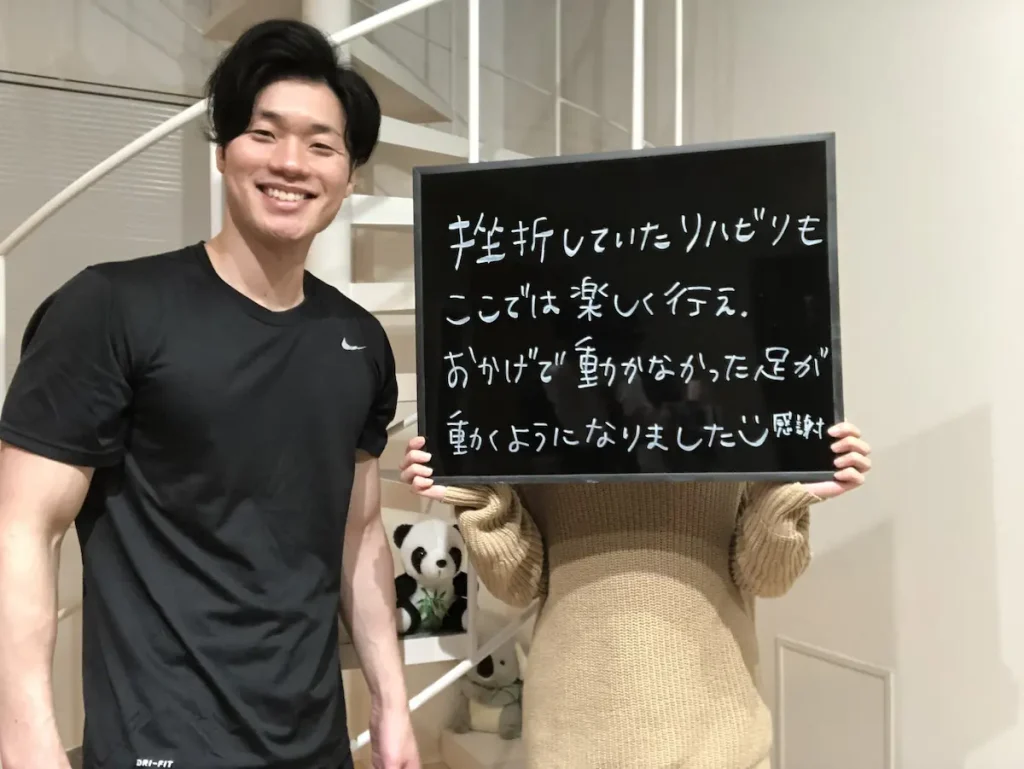 挫折していたリハビリも
ここでは楽しく行え.
おかげで動かなかった足が
動くようになりました 感謝!
DRI-FIT